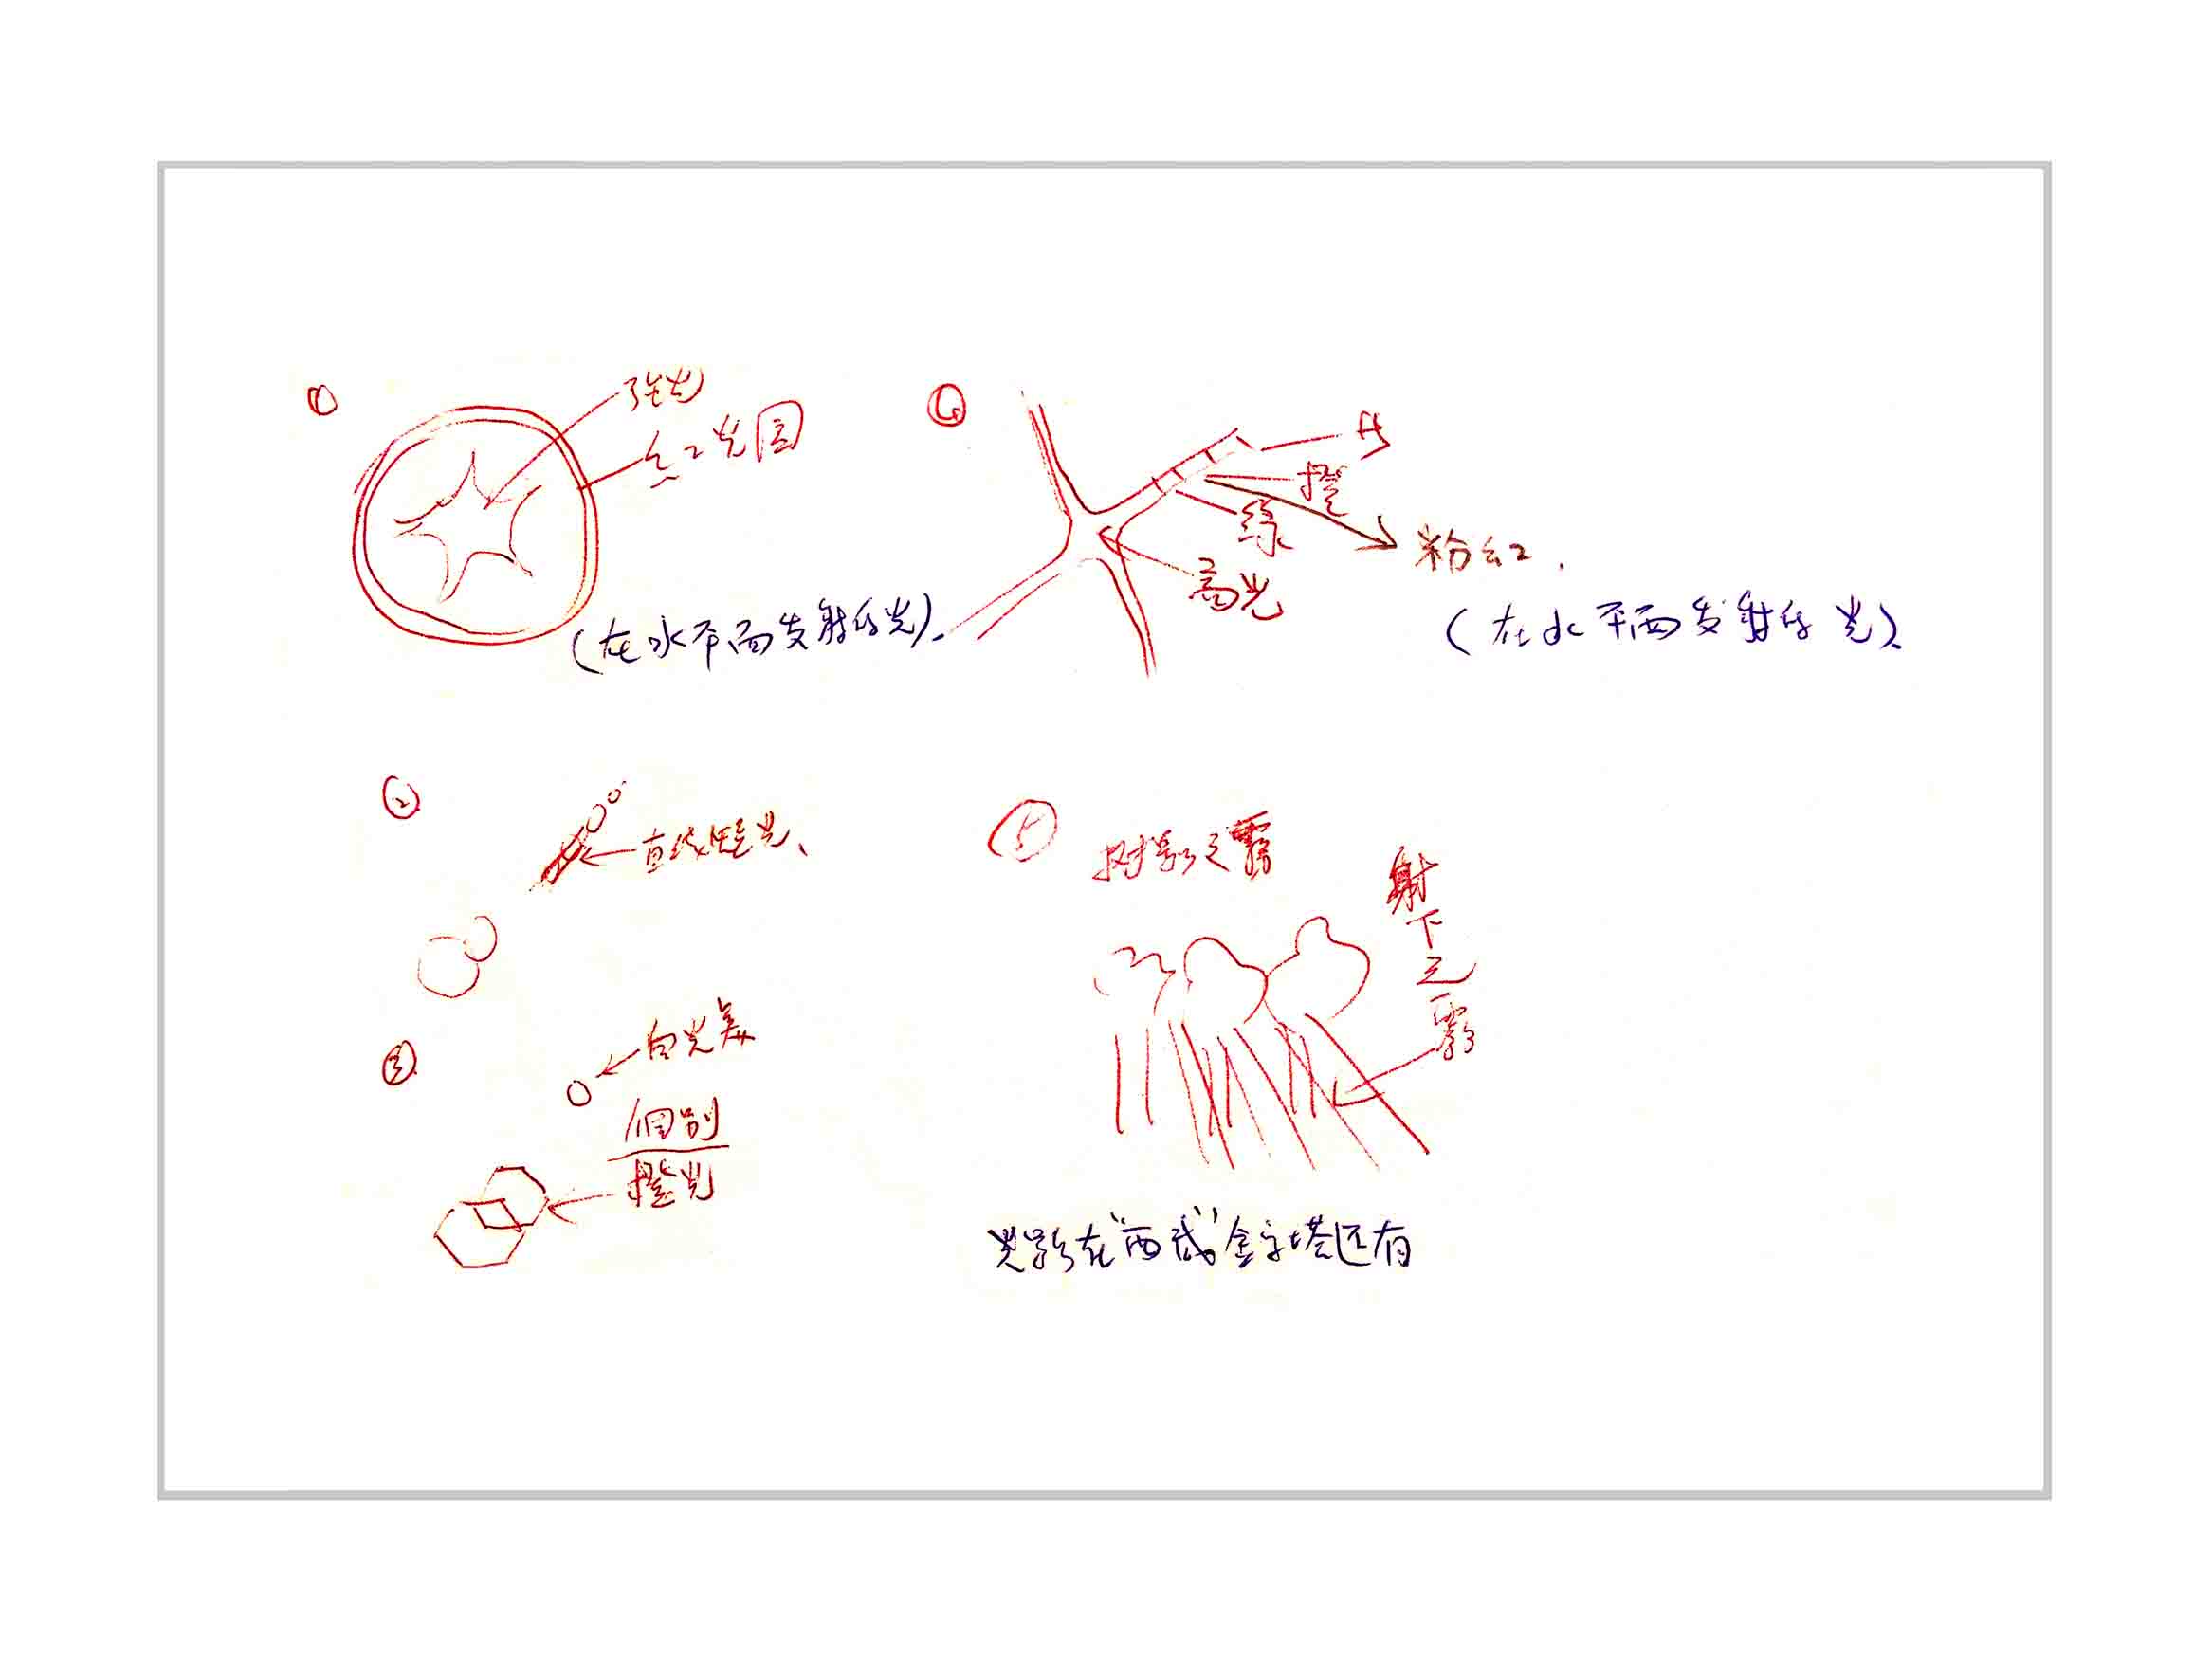 ①
强光
红光圆
(在水平面发射的光).
④
橙
绿
粉红.
高光
(在水平面发射的光).
②
直线短光、
③
白光
個别
橙光
⑤
树影之雾
射下之雾
光影在"西藏"金字塔还有